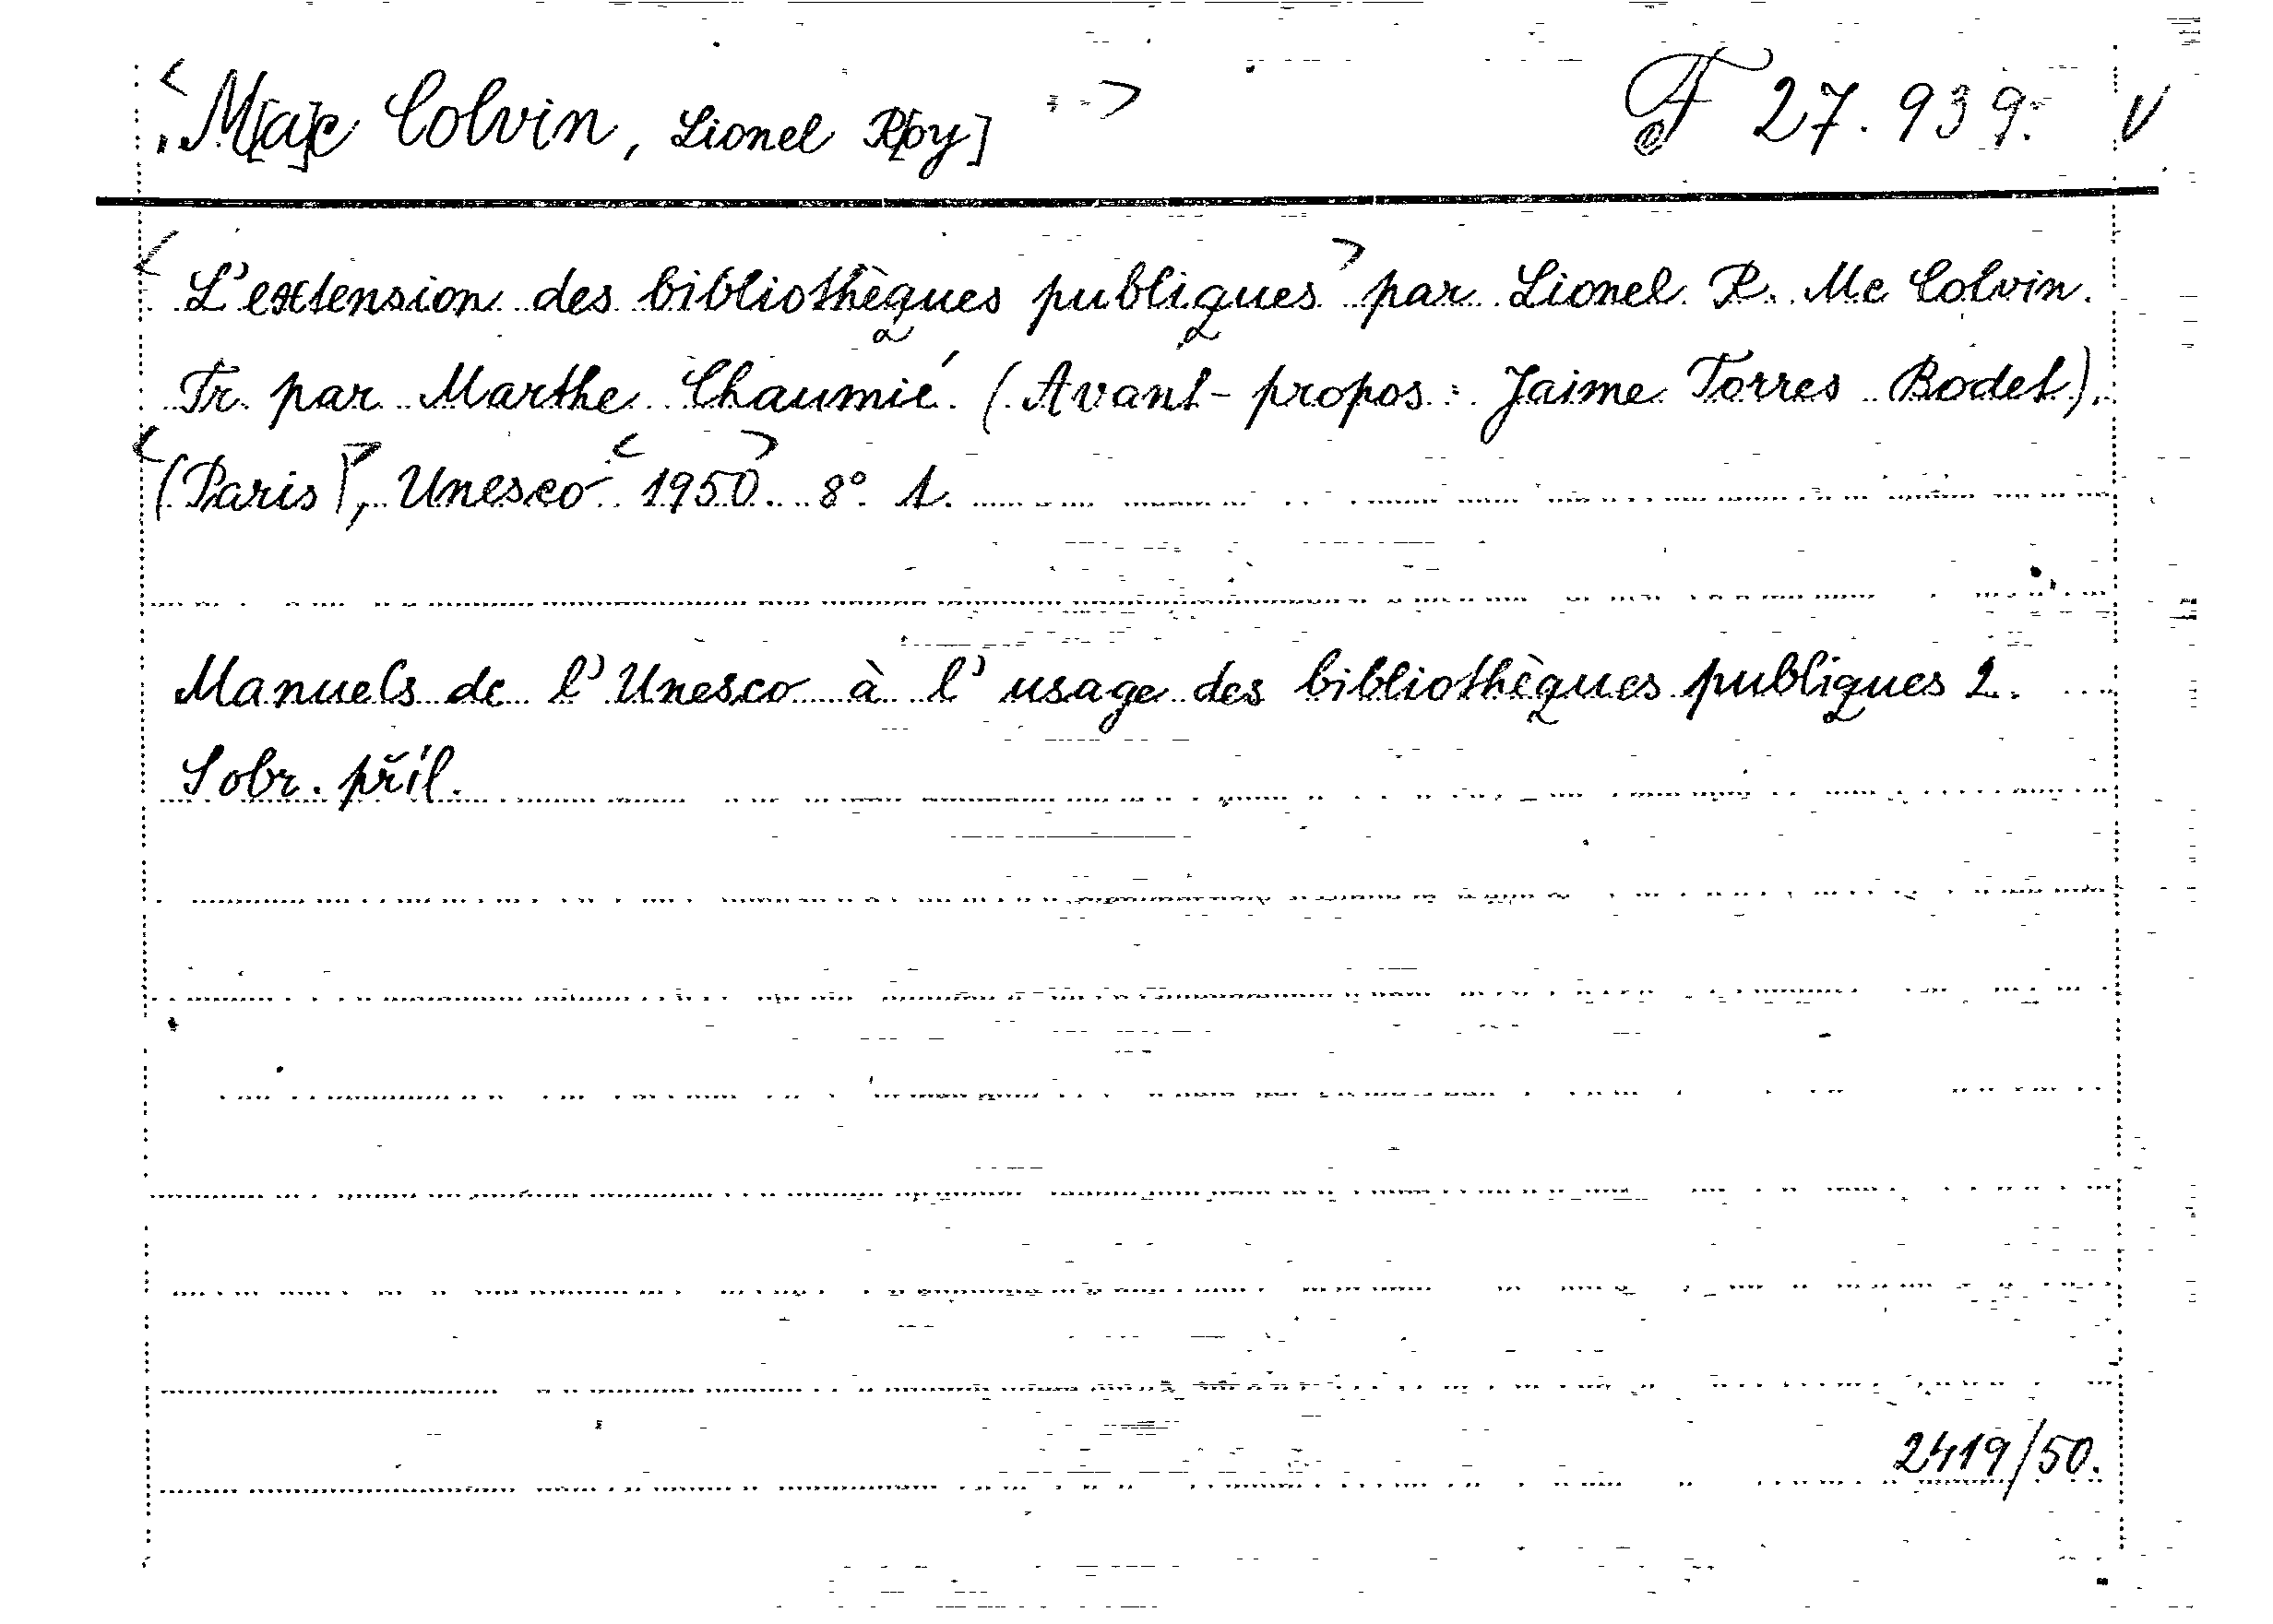 <M[a]c Colvin, Lionel R[oy]> F 27.939. V
<L'extension des bibliothèques publiques> par Lionel R. Mc Colvin.
Tr. par Marthe Chaumié. (Avant-propos: Jaime Torres Bodet).
<(Paris)>, Unesco <1950>. 8°. 1.
Manuels de l'Unesco à l'usage des bibliothèques publiques 2.
Sobr. příl.
2419/50.